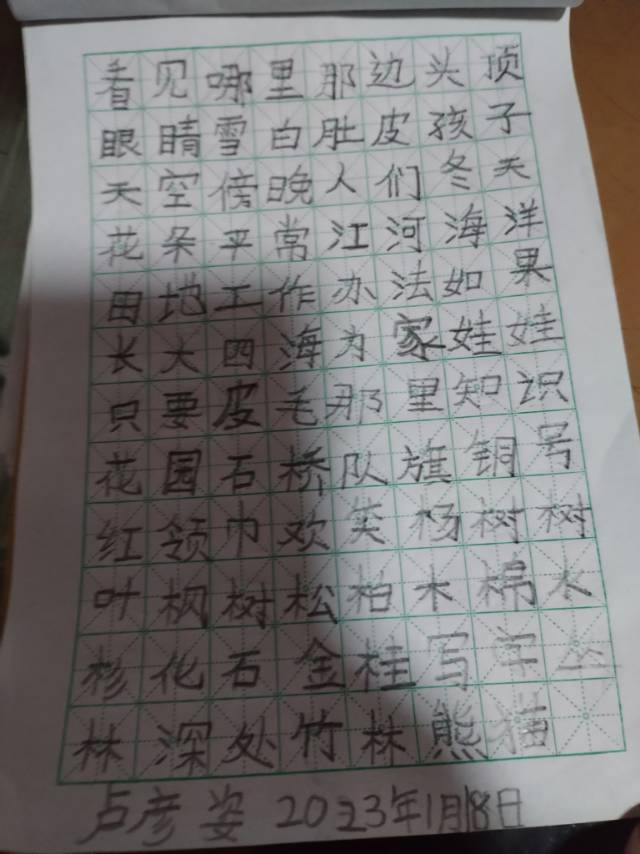 看见哪里那边头顶
眼睛雪白肚皮孩子
天空傍晚人们冬天
花朵平常江河海洋
田地工作办法如果
长大四海为家娃娃
只要皮毛那里知识
花园石桥队旗铜号
红领巾欢笑杨树树
叶枫树松柏木棉水
杉化石金桂写字丛
林深处竹林熊猫
卢彦姿 2023年1月18日